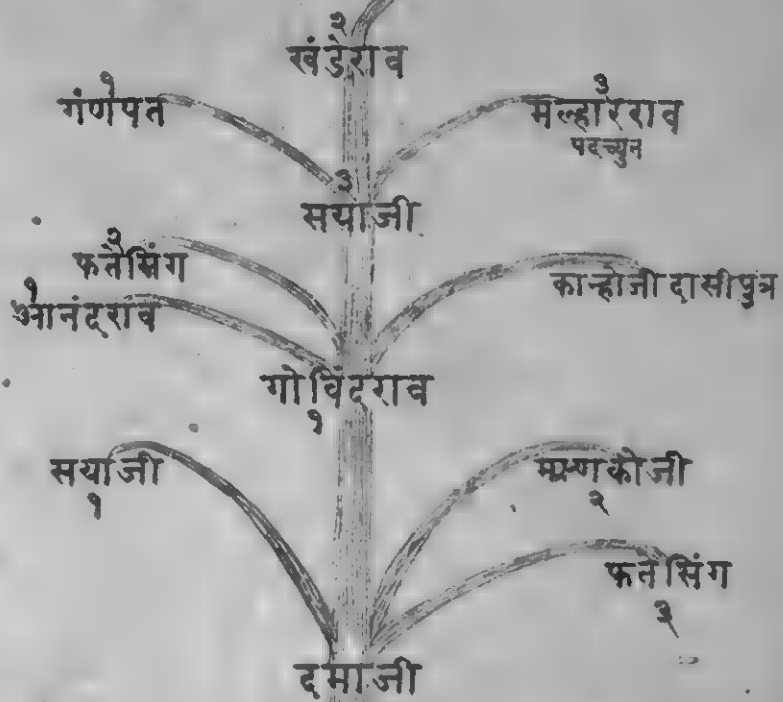 २
खंडेराव
१
गंणपत
३
मल्हारराव
पदच्युत
३
सयाजी
२
फतेसिंग
कान्होजी दासीपुत्र
१
आनंदराव
गोविंदराव
१
सयाजी
१
माणकोजी
२
फतेसिंग
३
दमाजी